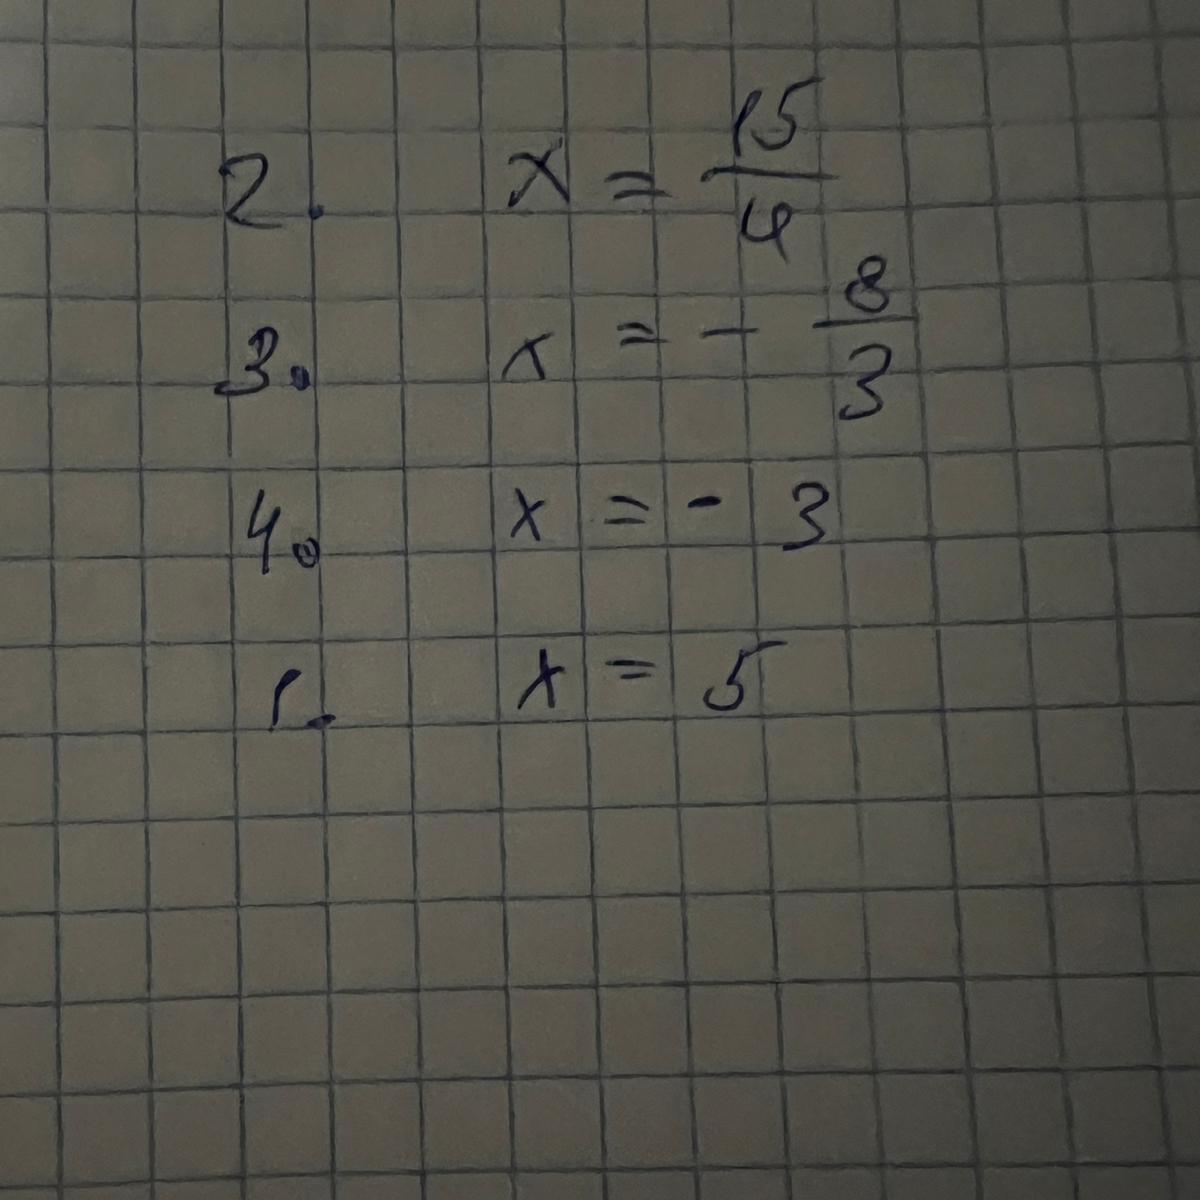 2. x = 15/4
3. x = - 8/3
4. x = - 3
1. x = 5